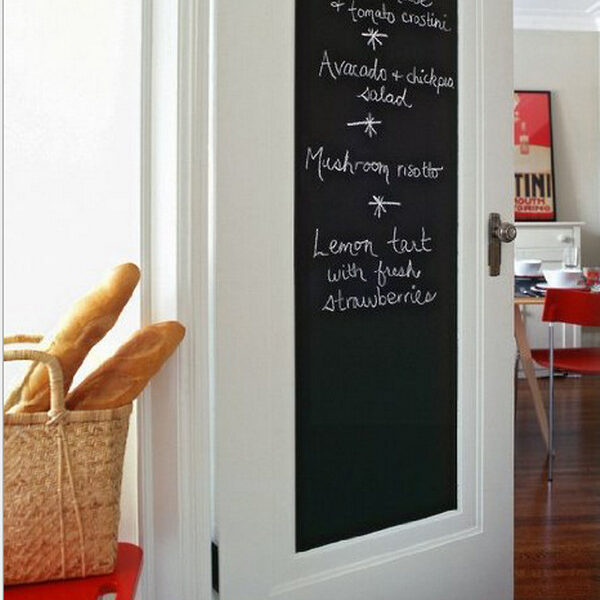 & tomato crostini
Avacado + chickpea
salad
Mushroom risotto
Lemon tart
with fresh
strawberries
TINI